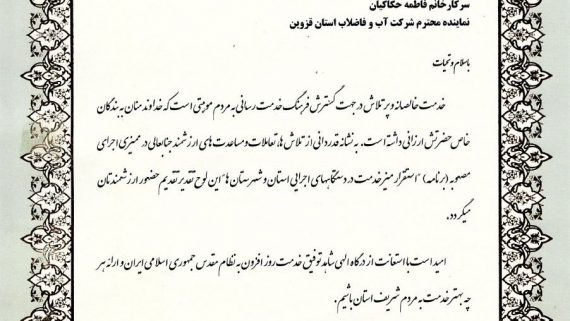 سرکار خانم فاطمه حکاکیان
نماینده محترم شرکت آب و فاضلاب استان قزوین
باسلام و تحیات
خدمت خالصانه و پر تلاش در جهت گسترش فرهنگ خدمت رسانی به مردم موهبتی است که خداوند منان به بندگان
خاص حضرتش ارزانی داشته است. به نشانه قدردانی از تلاش ها، تعاملات و مساعدت های ارزشمند جنابعالی در ممیزی اجرای
مصوبه (برنامه) "استقرار میز خدمت در دستگاههای اجرایی استان و شهرستان ها" این لوح تقدیر تقدیم حضور ارزشمندتان
میگردد.
امید است با استعانت از درگاه الهی شاهد توفیق خدمت روز افزون به نظام مقدس جمهوری اسلامی ایران و ارائه هر
چه بهتر خدمت به مردم شریف استان باشیم.